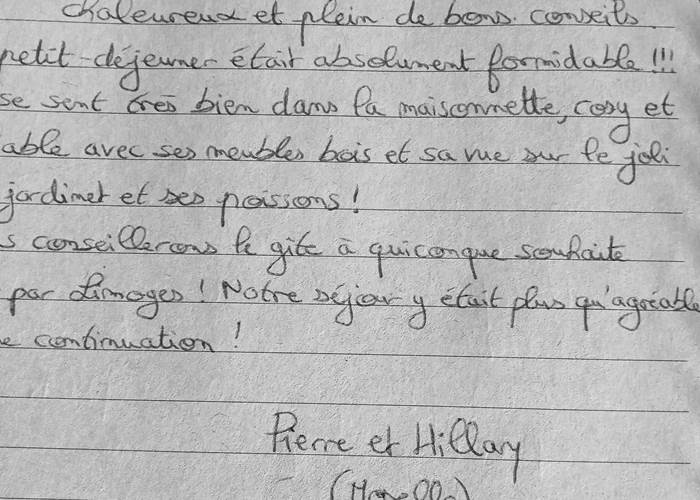 chaleureux et plein de bons conseils.
petit-déjeuner était absolument formidable !!!
se sent très bien dans la maisonnette, cosy et
able avec ses meubles bois et sa vue sur le joli
jardinet et ses poissons !
s conseillerons le gîte à quiconque souhaite
par Limoges ! Notre séjour y était plus qu'agréable
e continuation !
Pierre et Hillary